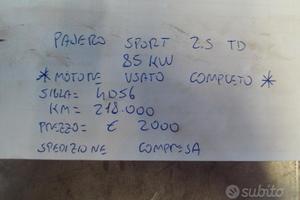 PAJERO SPORT 2.5 TD
85 KW
*MOTORE USATO COMPLETO*
SIGLA= 4D56
KM= 218.000
PREZZO= € 2000
SPEDIZIONE COMPRESA
subito